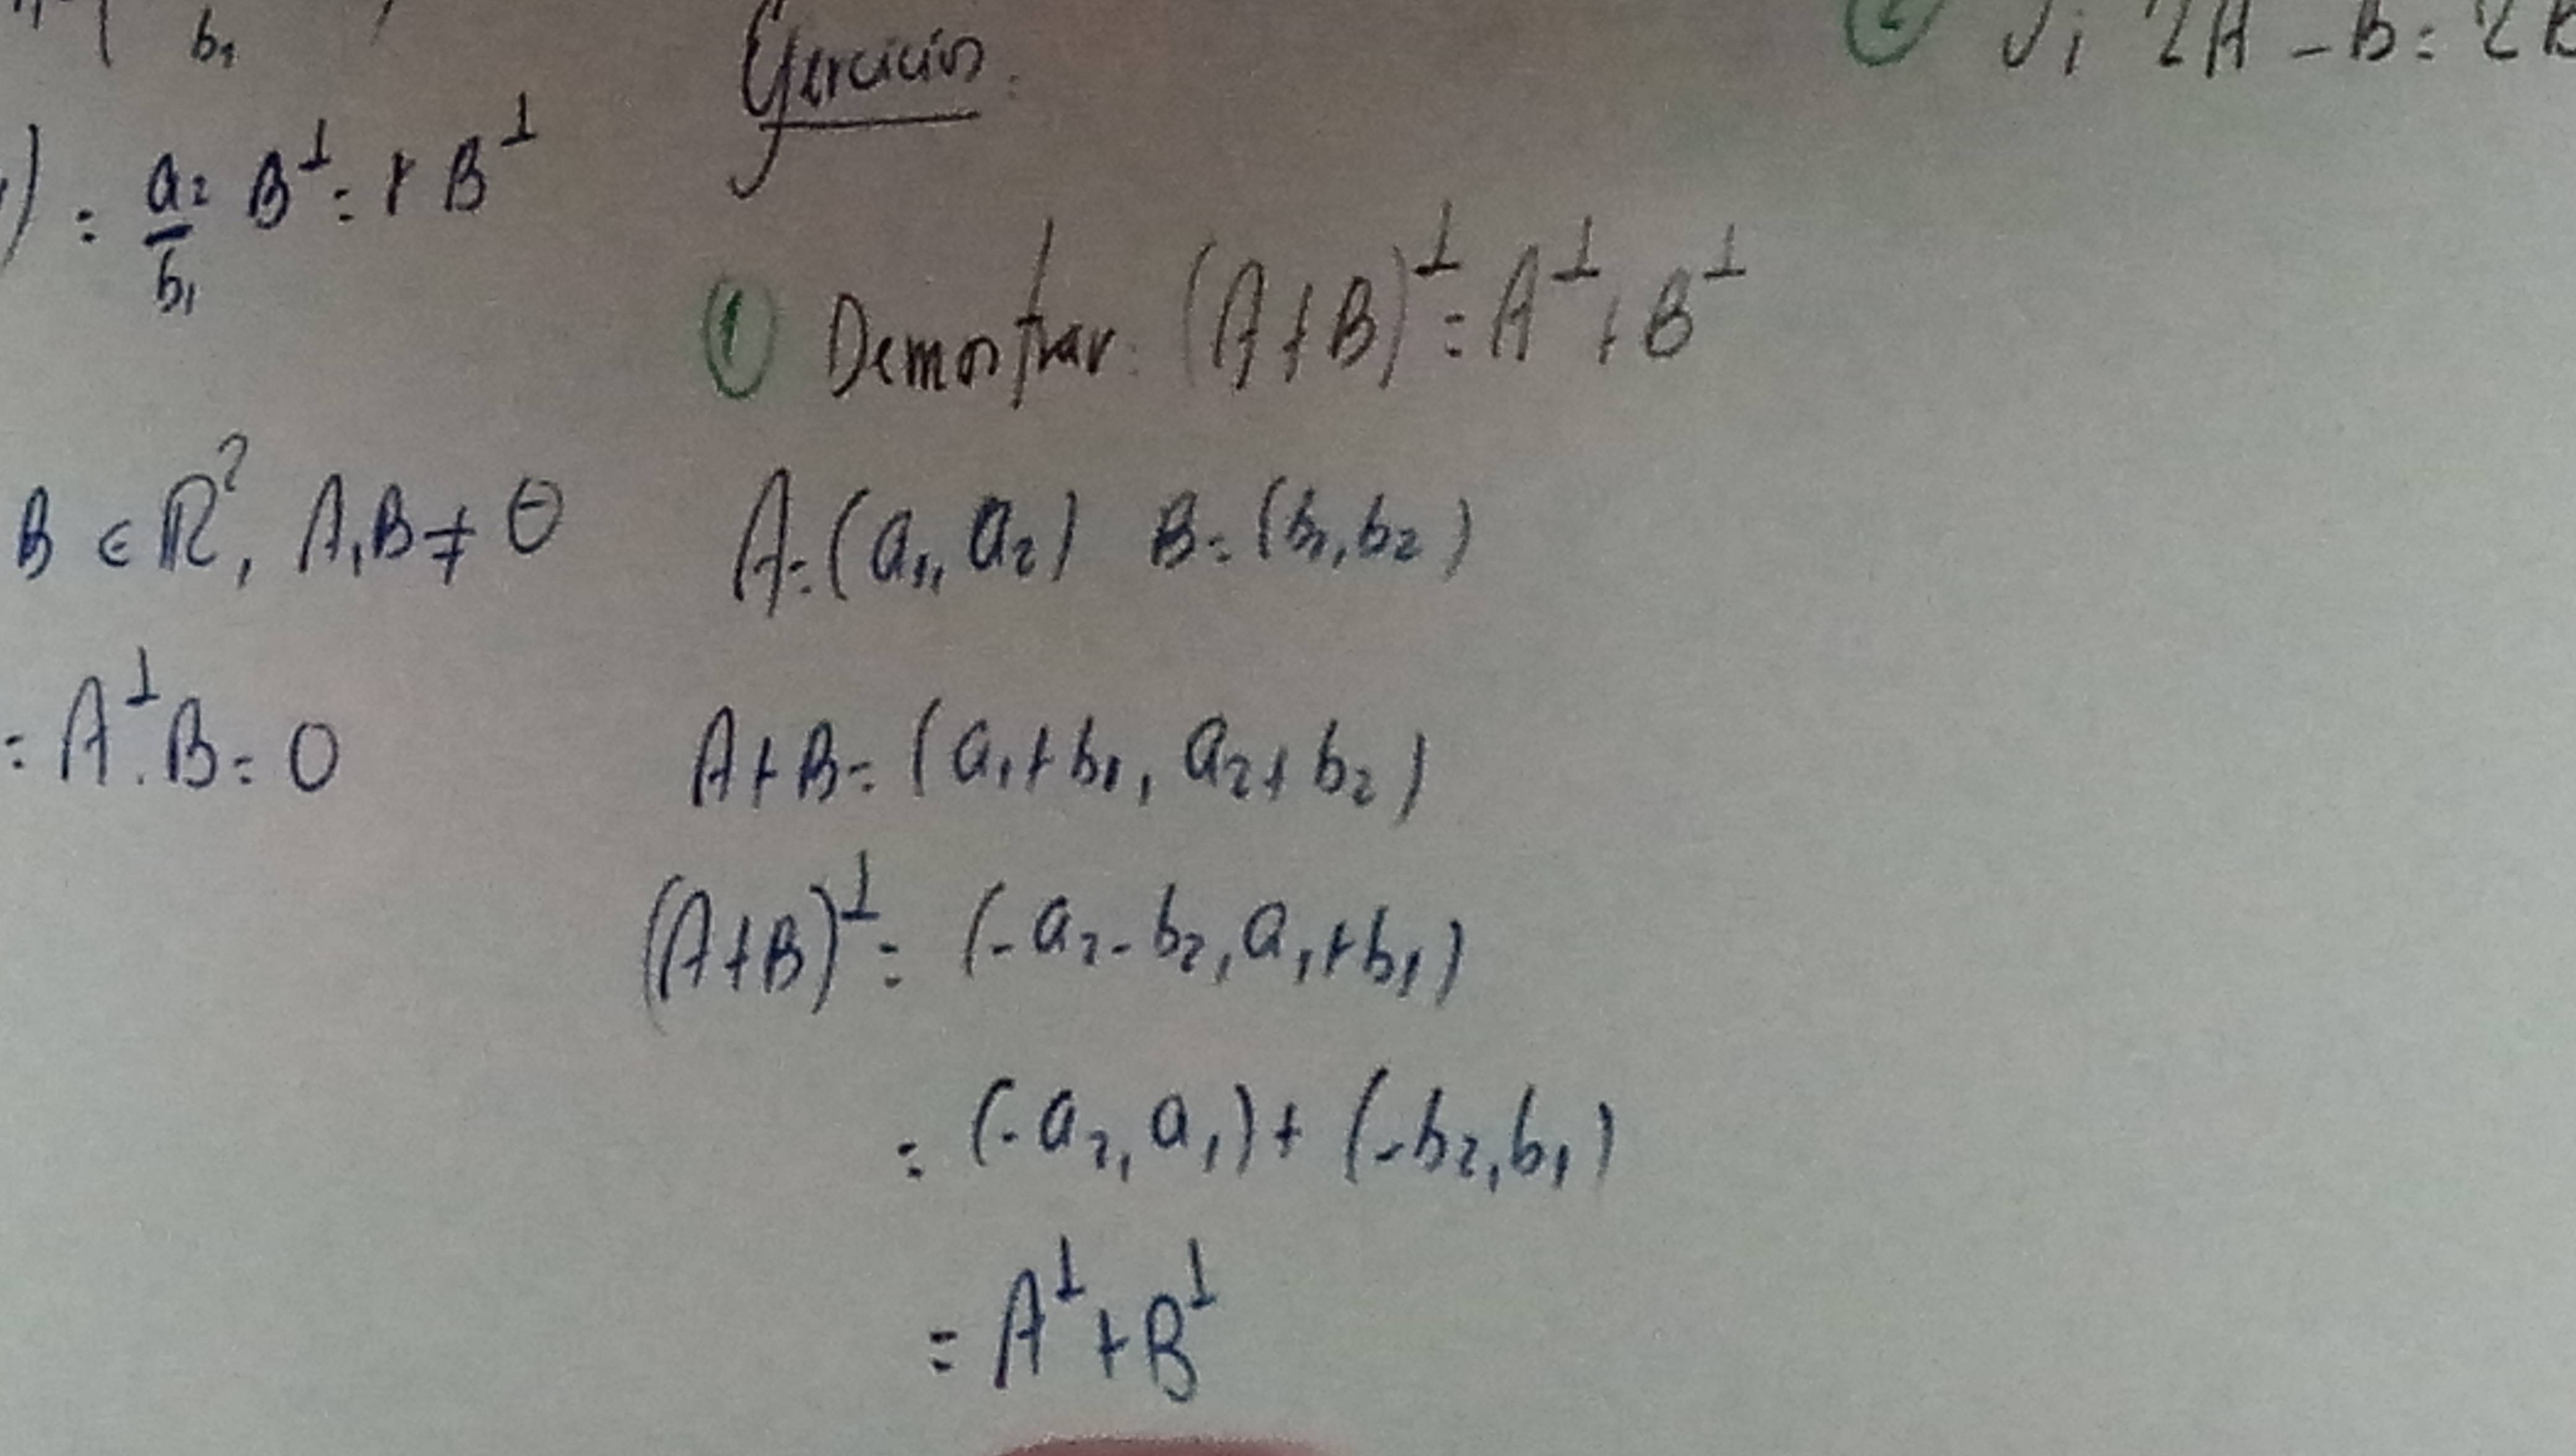 b₁
) = a₂/b₁ B^⊥ = r B^⊥
B ∈ ℝ², A, B ≠ Θ
= A^⊥ . B = 0
Ejercicios.
① Demostrar: (A+B)^⊥ = A^⊥ + B^⊥
A = (a₁, a₂) B = (b₁, b₂)
A+B = (a₁+b₁, a₂+b₂)
(A+B)^⊥ = (-a₂-b₂, a₁+b₁)
= (-a₂, a₁) + (-b₂, b₁)
= A^⊥ + B^⊥
② Si 2A - B = 2B